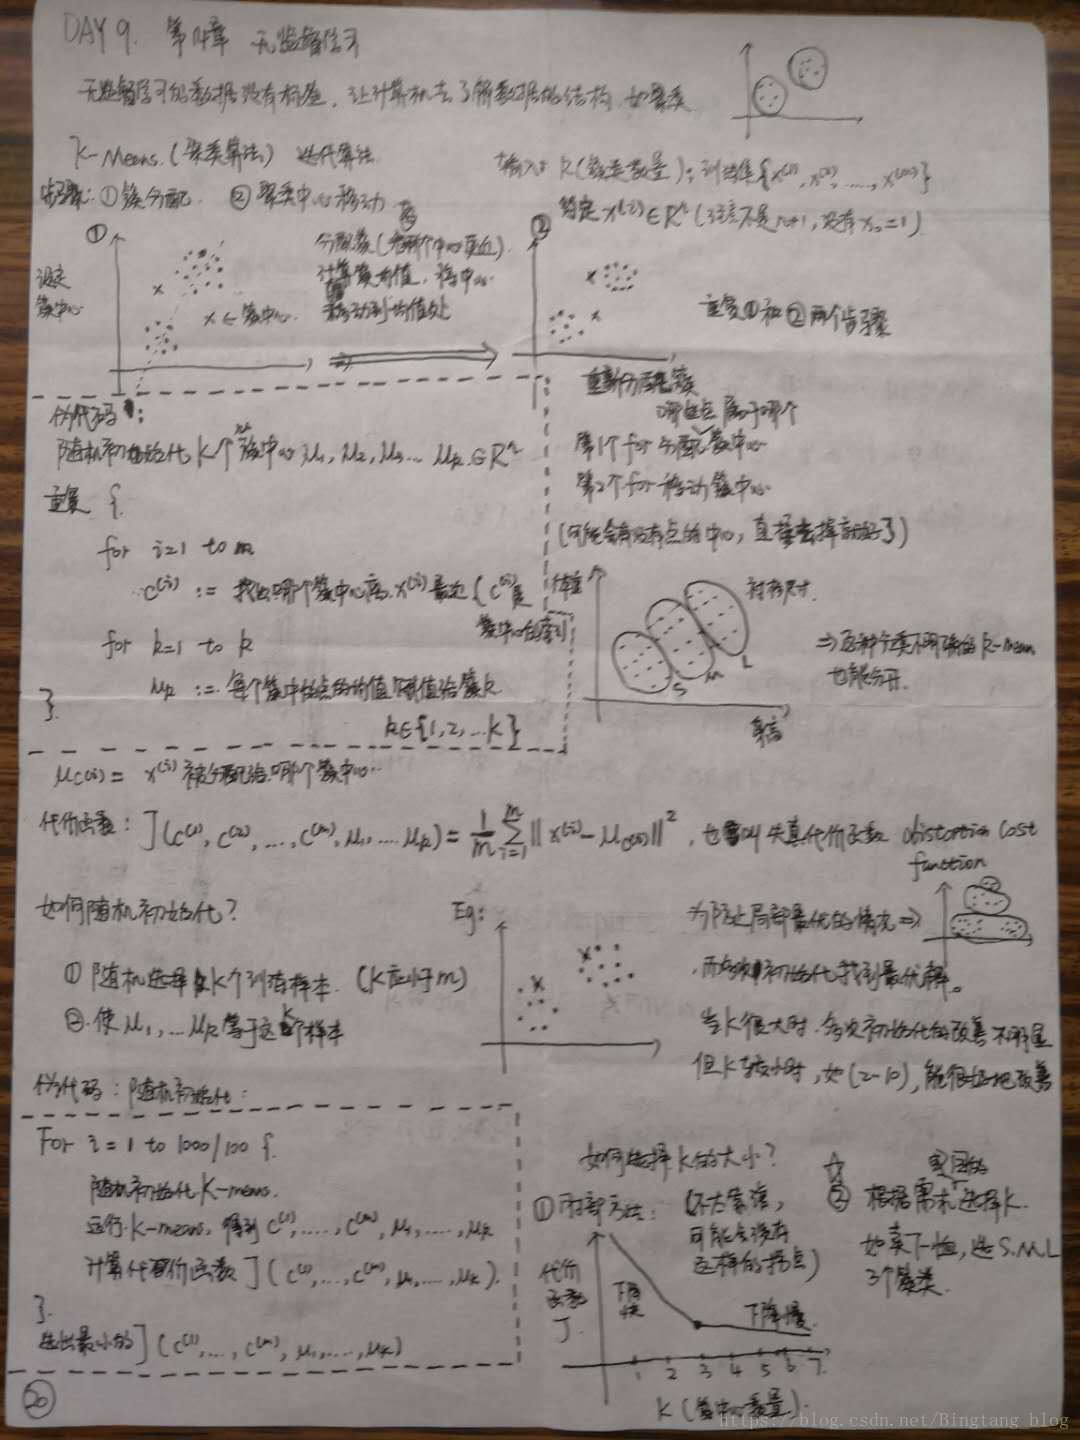 DAY 9. 第14章 无监督学习
无监督学习的数据没有标签，让计算机去了解数据的结构，如聚类
K-Means.(聚类算法) 迭代算法
输入：K(簇类数量)；训练集{x⁽¹⁾, x⁽²⁾, ...., x⁽ᵐ⁾}
步骤：①簇分配. ②聚类中心移动
约定 x⁽ⁱ⁾∈Rⁿ (注意不是n+1，没有x₀=1)
①
设定
簇中心
x ← 簇中心.
计算簇均值，将中心
移动到均值处
②
重复①和②两个步骤
伪代码：
随机初始化K个簇中心 μ₁, μ₂, μ₃... μₖ∈Rⁿ
重复 {
for i=1 to m
c⁽ⁱ⁾ := 找出哪个簇中心离x⁽ⁱ⁾最近 (c⁽ⁱ⁾是
簇中心的索引
for k=1 to k
μₖ := 每个簇中的点的均值赋值给簇k
}.
k∈{1,2,...k}
重新分配簇
哪些点属于哪个
第1个for 分配簇中心
第2个for 移动簇中心
(可能会有没有点的中心，直接去掉就好了)
体重
衬衫尺寸.
S M L
身高
⇒这种分类不明确的k-mean
也能分开.
μc(i) = x⁽ⁱ⁾被分配给哪个簇中心
代价函数：J(c⁽¹⁾, c⁽²⁾, ..., c⁽ᵐ⁾, μ₁, .... μₖ) = 1/m Σᵢ₌₁ᵐ ‖x⁽ⁱ⁾ - μc(i)‖², 也叫失真代价函数 distortion cost
function
如何随机初始化？
Eg:
①随机选择K个训练样本. (K应小于m)
②.使μ₁, ... μₖ等于这K个样本
为防止局部最优的情况⇒
，而多次初始化找到最优解。
当K很大时，多次初始化的改善不明显
但K较小时，如(2~10)，能很好地改善
伪代码：随机初始化：
For i = 1 to 1000/100 {.
随机初始化K-means.
运行k-means, 得到 c⁽¹⁾, ...., c⁽ᵐ⁾, μ₁, ...., μₖ
计算代价函数 J(c⁽¹⁾, ..., c⁽ᵐ⁾, μ₁, ...., μₖ).
}.
选出最小的J(c⁽¹⁾, ..., c⁽ᵐ⁾, μ₁, ...., μₖ)
如何选择K的大小？
①肘部方法：(不太靠谱，
可能会没有
这样的拐点)
代价
函数
J.
下降
快
下降慢.
1 2 3 4 5 6 7
K (簇中心数量).
☆ 常用的
② 根据需求选择K.
如卖T-恤, 选S.M.L
3个簇类.
20
https://blog.csdn.net/Bingtang_blog